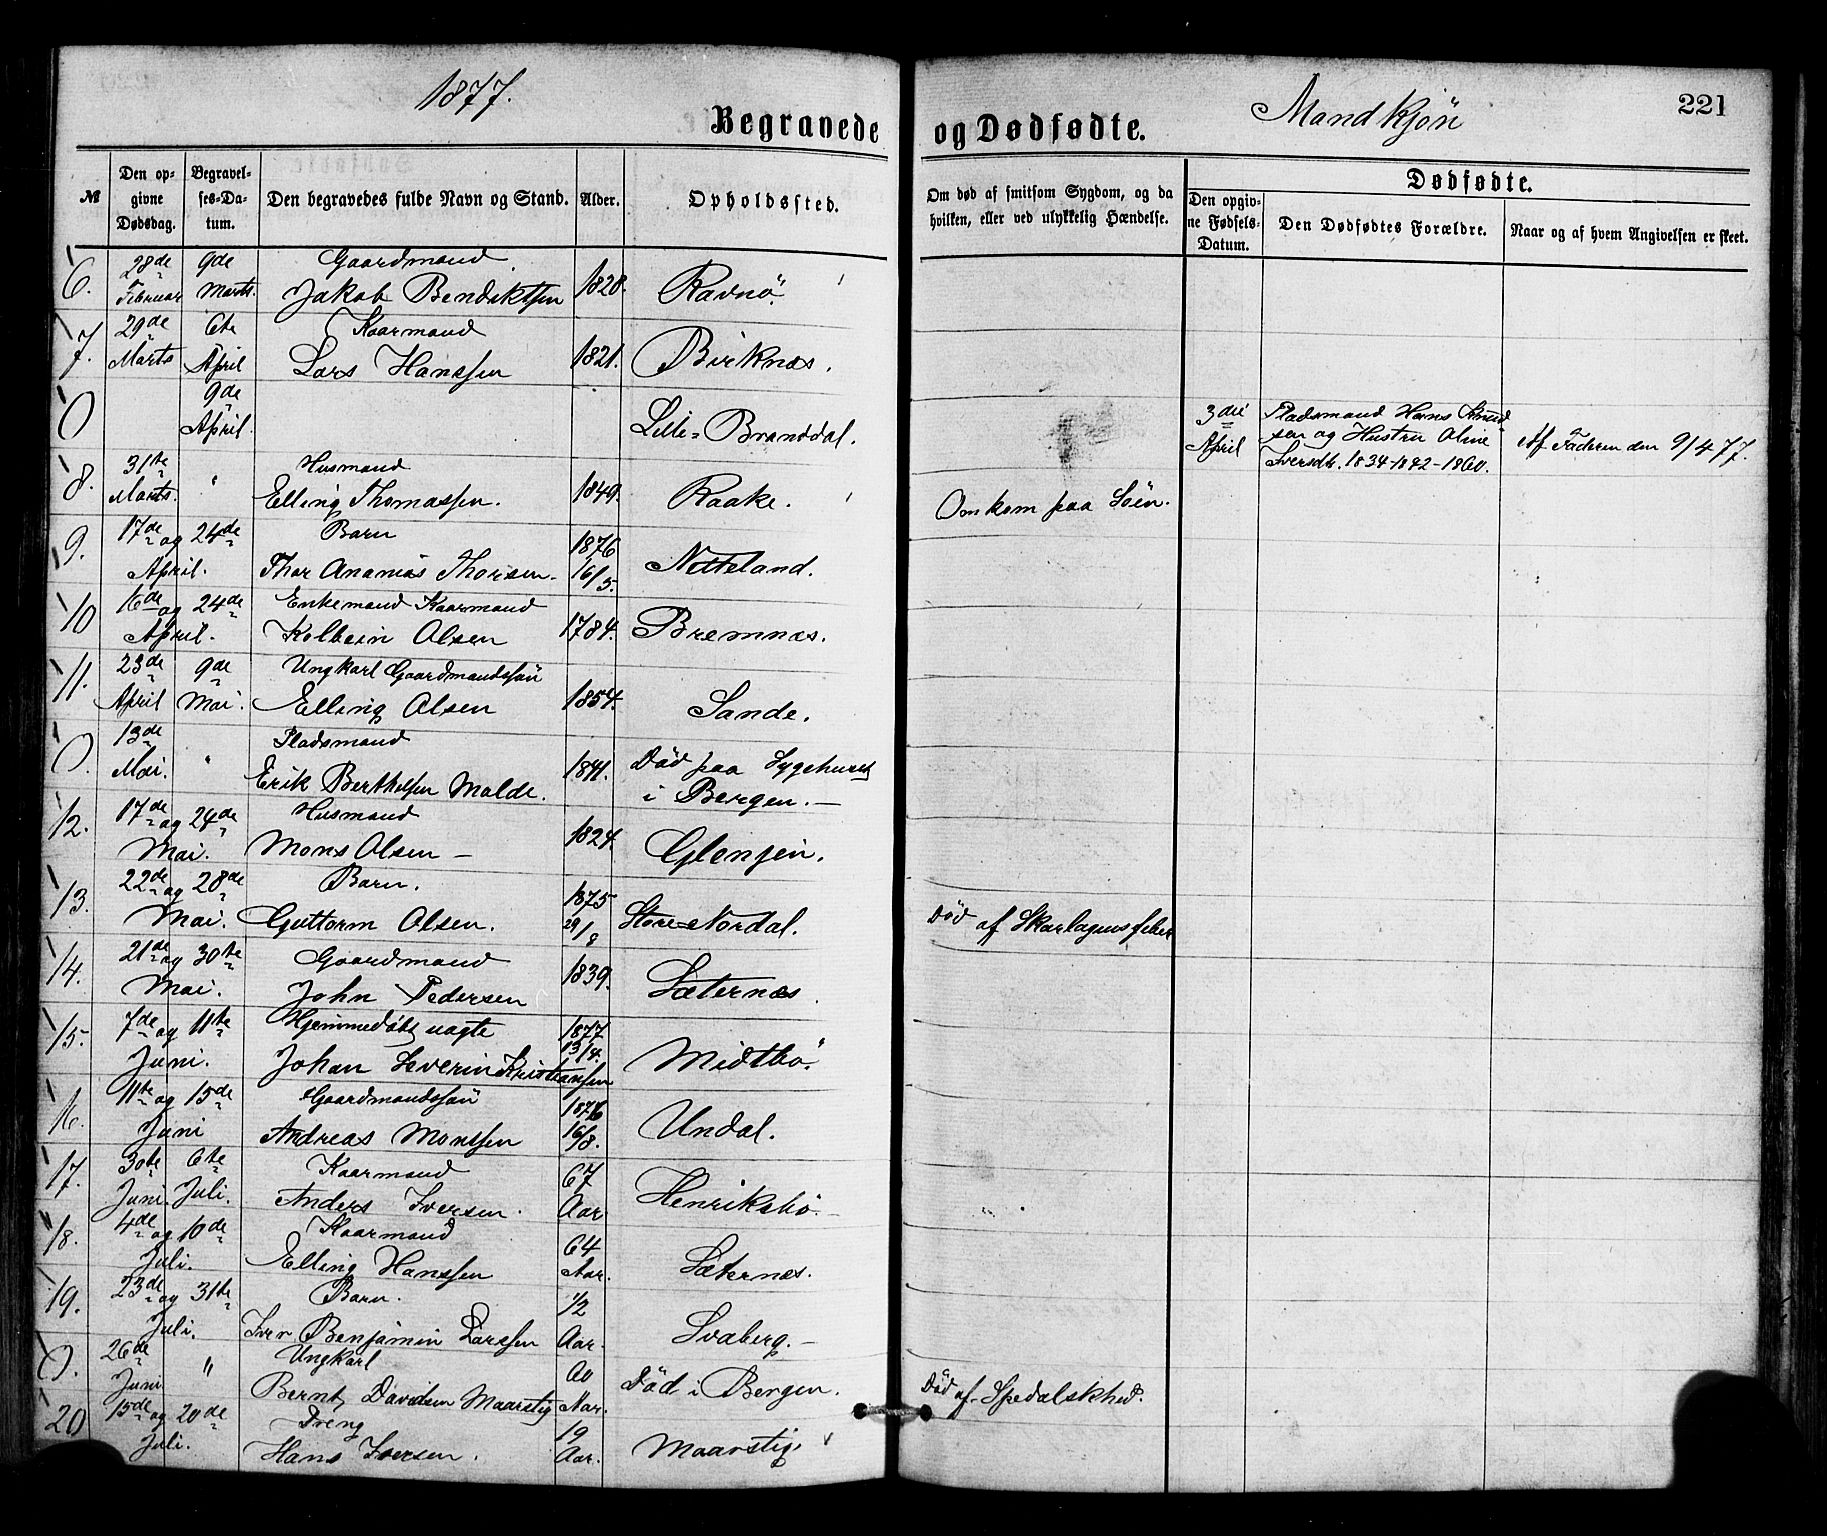 1877.
Begravede og Dødfødte.
Mandkjøn
221
№
Den opgivne Dødsdag.
Begravelses-Datum.
Den begravedes fulde Navn og Stand.
Alder.
Opholdssted.
Om død af smitsom Sygdom, og da hvilken, eller ved ulykkelig Hændelse.
Dødfødte.
Den opgivne Fødsels-Datum.
Den Dødfødtes Forældre.
Naar og af hvem Angivelsen er skeet.
6. 28de Februar 9de Marts. Gaardmand Jakob Bendiktsen 1828. Ravnö.
7. 29de Marts 6te April Kaarmand Lars Hanssen 1821. Birknæs.
0 9de April. Lille=Branddal. 3die April Pladsmand Hans Knudsen og Hustru Oline Iversdtr. 1834-1842-1860. Af Faderen den 9/4 77.
8. 31te Marts. " Husmand Elling Thomassen. 1849. Raake. Omkom paa Söen.
9. 17de og 24de April. Barn Thor Ananias Thorsen. 1876 16/5. Netteland.
10 16de og 24de April. Enkemand Kaarmand Kolbein Olsen 1784. Bremnæs.
11. 23de April 9de Mai. Ungkarl Gaardmandssön Elling Olsen 1854. Sande.
0. 13de Mai. " Pladsmand Erik Berthelsen Molde. 1841. Död paa Sygehuset i Bergen. —
12. 17de og 24de Mai. Husmand Mons Olsen — 1824. Glenjen.
13. 22de og 28de Mai. Barn. Guttorm Olsen. 1875 29/8 Store=Nordal. Död af Skarlagensfeber
14. 21de og 30te Mai. Gaardmand John Pedersen 1839. Sæternæs.
15. 7de og 11te Juni. Hjemmedöbt uægte Johan Severin Kristiansen 1877 13/4. Midtbö.
16. 11te og 15de Juni Gaardmandssön Andreas Monssen 1876 16/8. Undal.
17. 30te Juni. 6te Juli. Kaarmand Anders Iversen. 67 Aar Henriksbö.
18. 4de og 10de Juli. Kaarmand Elling Hanssen 64 Aar. Sæternæs.
19. 23de og 31te Juli. Barn. Iver Benjamin Larssen 1/2 Aar. Svaberg. —
0. 26de Juni " Ungkarl Bernt Davidsen Maarstig Aar. Död i Bergen. Död af Spedalskhed.
20 15de og 20de Juli. Dreng Hans Iversen. 19 Aar. Maarstig.